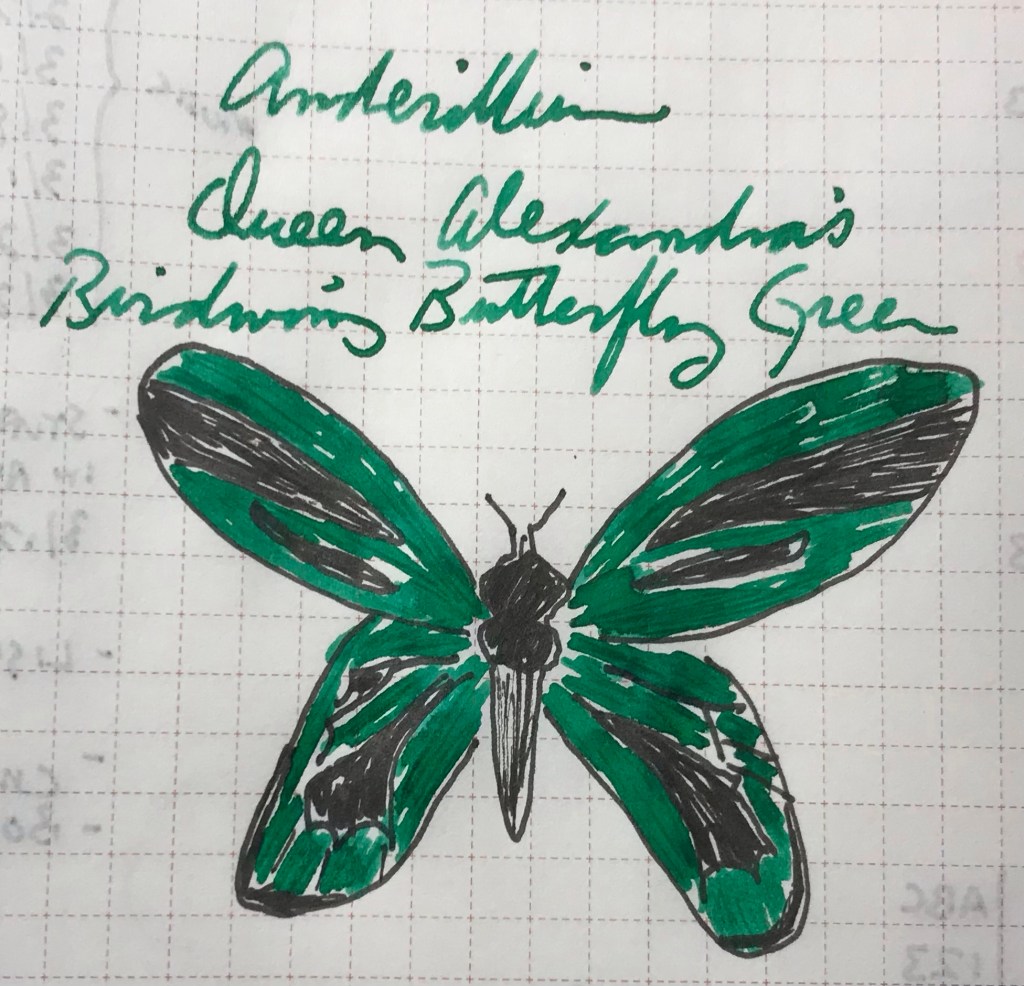 Anderillium
Queen Alexandra's
Birdwing Butterfly Green
ABC
123